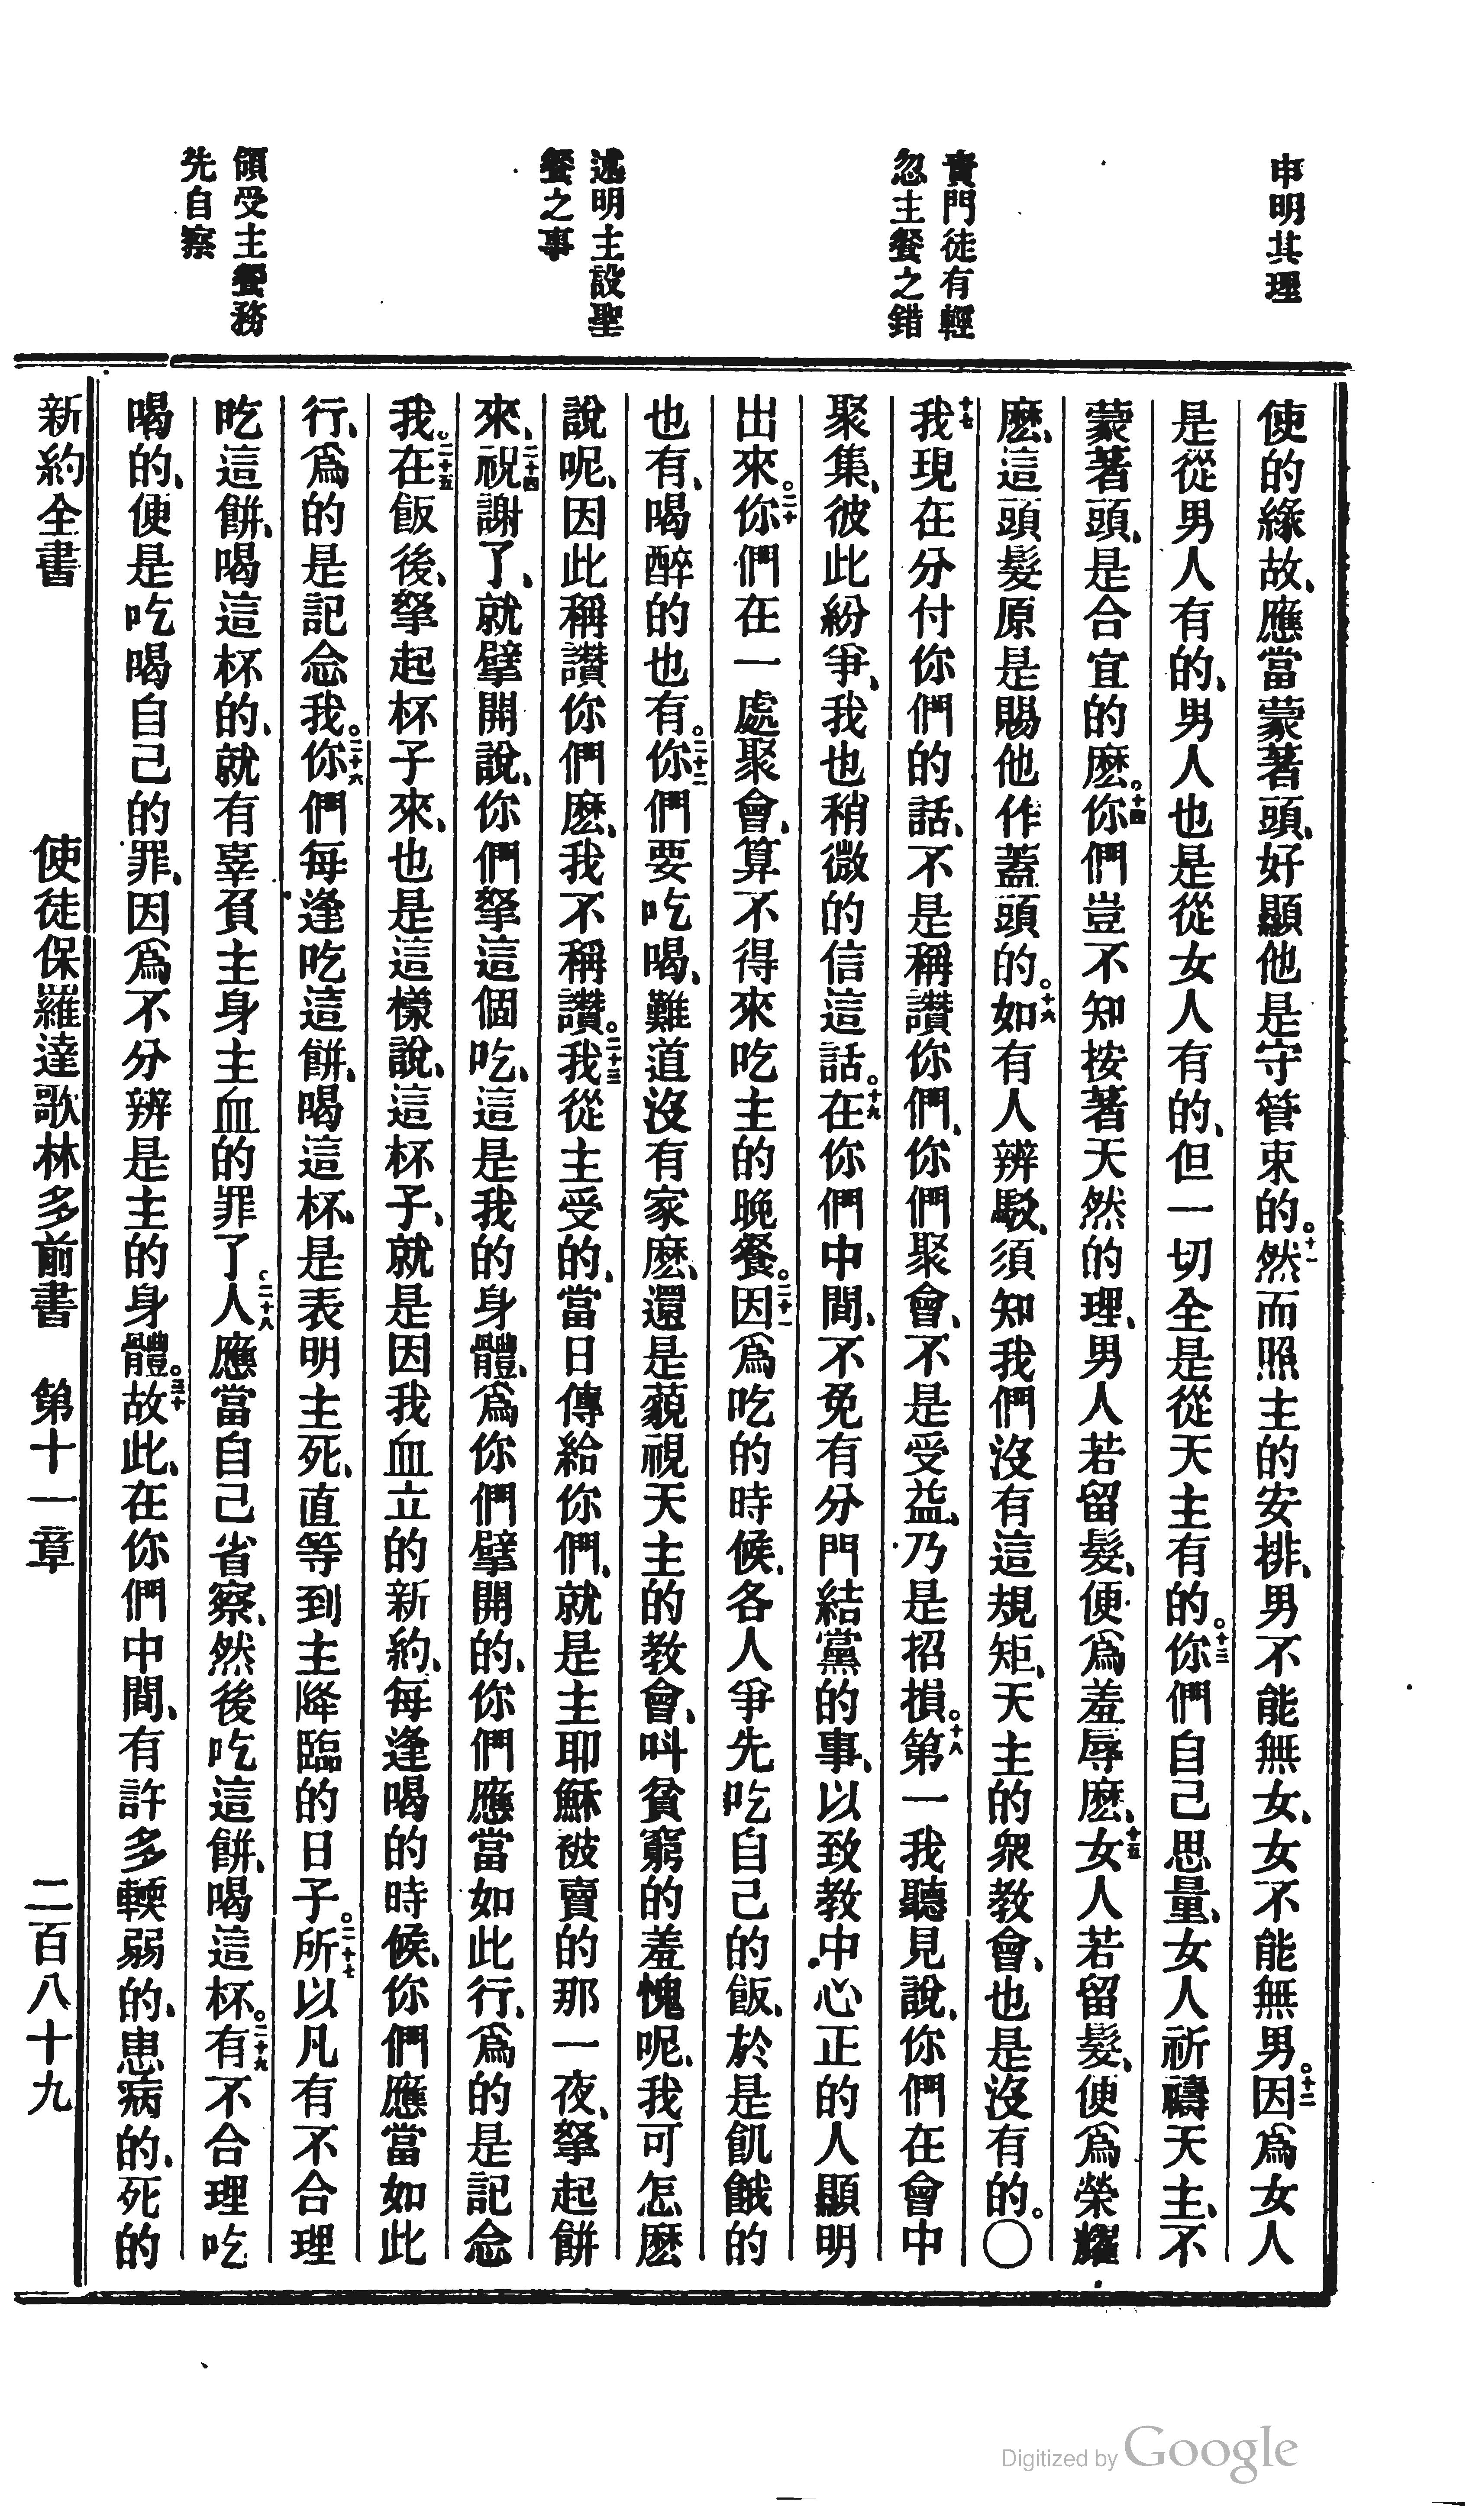 申明其理
責門徒有輕
忽主餐之錯
述明主設聖
餐之事
領受主餐務
先自察
使的緣故、應當蒙著頭、好顯他是守管束的。十一然而照主的安排、男不能無女、女不能無男。十二因爲女人
是從男人有的、男人也是從女人有的、但一切全是從天主有的。十三你們自己思量、女人祈禱天主、不
蒙著頭、是合宜的麽。十四你們豈不知按著天然的理、男人若留髮、便爲羞辱麽、十五女人若留髮、便爲榮耀
麽、這頭髮原是賜他作蓋頭的。十六如有人辨駁、須知我們沒有這規矩、天主的衆教會、也是沒有的。〇
十七我現在分付你們的話、不是稱讚你們、你們聚會、不是受益、乃是招損。十八第一我聽見說、你們在會中
聚集、彼此紛爭、我也稍微的信這話。十九在你們中間、不免有分門結黨的事、以致教中心正的人顯明
出來。二十你們在一處聚會、算不得來吃主的晚餐。二十一因爲吃的時候、各人爭先吃自己的飯、於是飢餓的
也有、喝醉的也有。二十二你們要吃喝、難道沒有家麽、還是藐視天主的教會、叫貧窮的羞愧呢、我可怎麽
說呢、因此稱讚你們麽、我不稱讚。二十三我從主受的、當日傳給你們、就是主耶穌被賣的那一夜、拏起餅
來、二十四祝謝了、就擘開說、你們拏這個吃、這是我的身體、爲你們擘開的、你們應當如此行、爲的是記念
我。二十五在飯後、拏起杯子來、也是這樣說、這杯子、就是因我血立的新約、每逢喝的時候、你們應當如此
行、爲的是記念我。二十六你們每逢吃這餅、喝這杯、是表明主死、直等到主降臨的日子。二十七所以凡有不合理
吃這餅、喝這杯的、就有辜負主身主血的罪了。二十八人應當自己省察、然後吃這餅、喝這杯。二十九有不合理吃
喝的、便是吃喝自己的罪、因爲不分辨是主的身體。三十故此、在你們中間、有許多輭弱的、患病的、死的
新約全書 使徒保羅達歌林多前書 第十一章 二百八十九
Digitized by Google